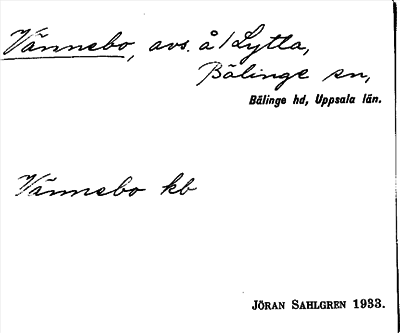 Vännebo, avs. å /Lytta,
Bälinge sn,
Bälinge hd, Uppsala län.
Vännebo kb
JÖRAN SAHLGREN 1933.